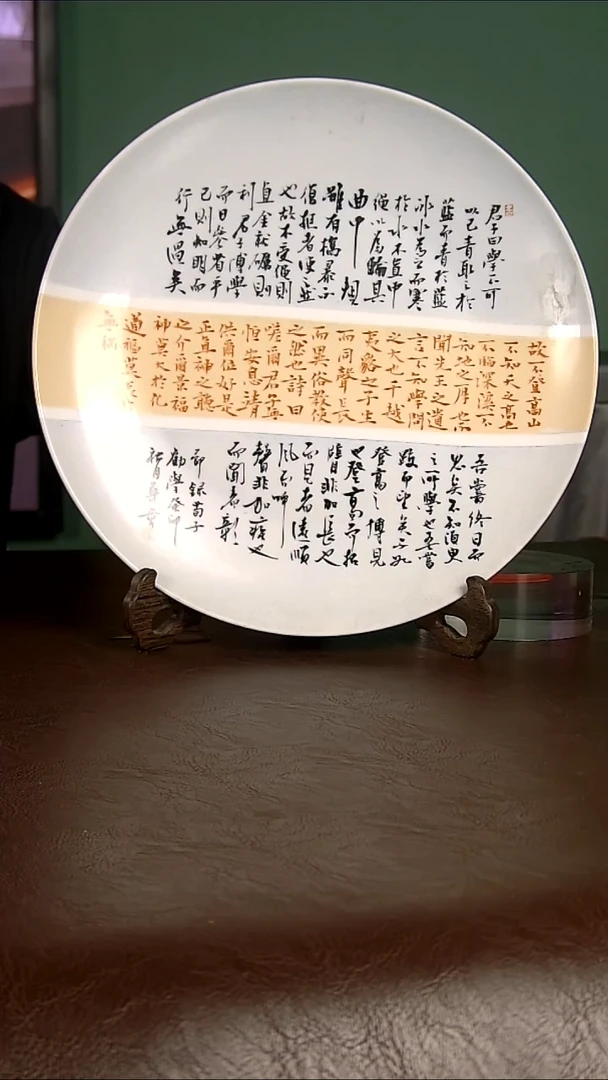 君子曰學不可
以已青取之於
藍而青於藍
冰水為之而寒
於水木直中
繩以為輪其
曲中規
雖有槁暴不
挺者使
也故木受繩則
直金就礪則
利君子博學
而日參省乎
己則知明而
行無過矣
故不登高山
不知天之高也
不臨深溪不
知地之厚也不
聞先王之遺
言不知學問
之大也干越
夷貉之子生
而同聲長
而異俗教使
之然也詩曰
嗟爾君子無
恒安息靖
供爾位好是
正直神之聽
之介爾景福
神莫大於化
道福莫長於
無禍
吾嘗終日而
思矣不如須臾
之所學也吾嘗
跂而望矣不如
登高之博見
也登高而招
臂非加長也
而見者遠順
風而呼
聲非加疾也
而聞者彰
節錄荀子
勸學